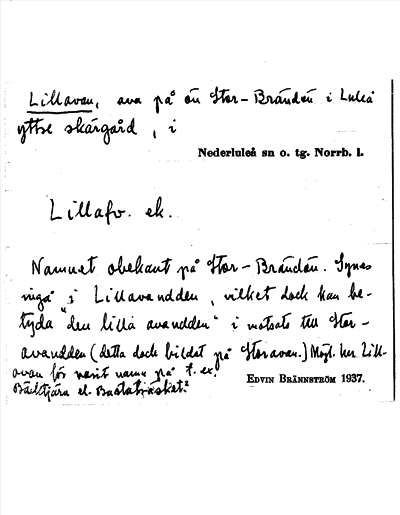 Lillavan, ava på ön Stor-Brändön i Luleå
yttre skärgård, i
Nederluleå sn o. tg. Norrb. l.
Lillafv. ek.
Namnet obekant på Stor-Brändön. Synes
ingå i Lillavandden, vilket dock kan be-
tyda "den lilla avandden" i motsats till Stor-
avandden (detta dock bildat på Storavan.) Möjl. har Lill-
avan förr varit namn på t. ex.
el. Bastaträsket.
EDVIN BRÄNNSTRÖM 1937.